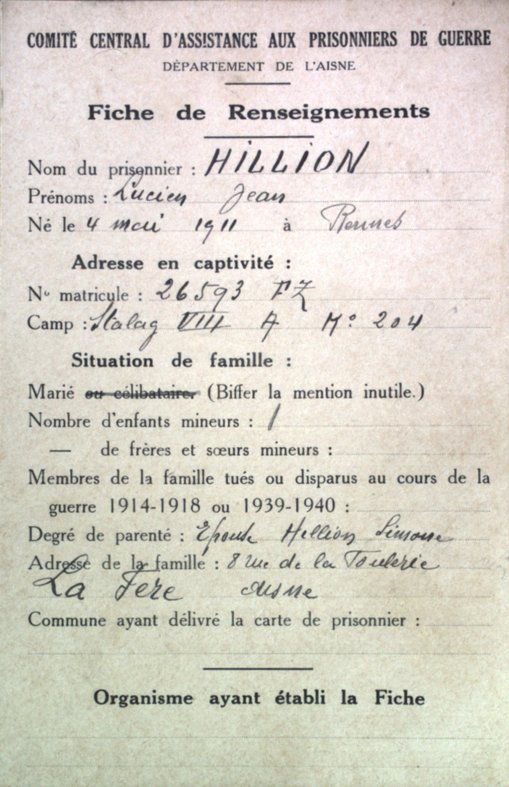 COMITÉ CENTRAL D'ASSISTANCE AUX PRISONNIERS DE GUERRE
DÉPARTEMENT DE L'AISNE
Fiche de Renseignements
Nom du prisonnier : HILLION
Prénoms : Lucien Jean
Né le 4 mai 1911 à Rennes
Adresse en captivité :
No matricule : 26593 FZ
Camp : Stalag VIII A No 204
Situation de famille :
Marié ou célibataire. (Biffer la mention inutile.)
Nombre d'enfants mineurs : 1
— de frères et sœurs mineurs :
Membres de la famille tués ou disparus au cours de la
guerre 1914-1918 ou 1939-1940 :
Degré de parenté : Epouse Hillion Simone
Adresse de la famille : 8 rue de la
La Fère Aisne
Commune ayant délivré la carte de prisonnier :
Organisme ayant établi la Fiche